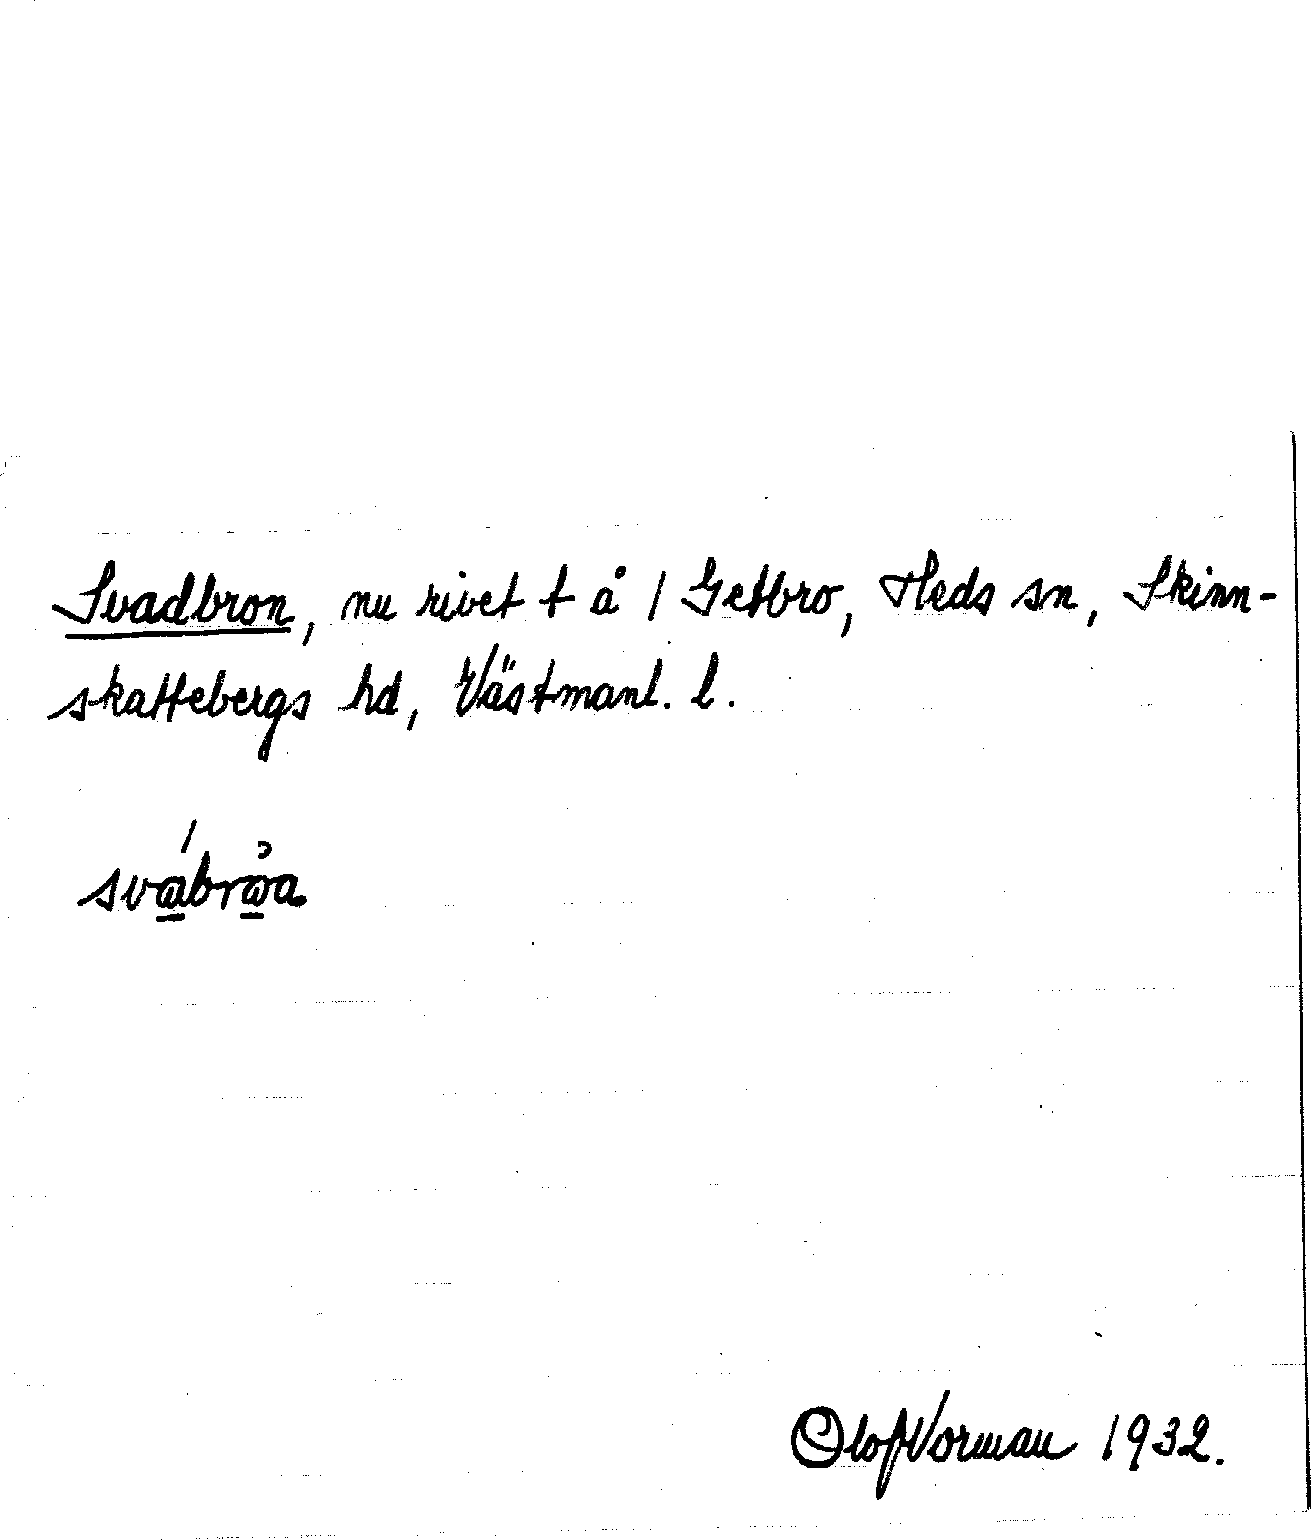 Svadbron, nu rivet t å / Getbro, Heds sn, Skinn-
skattebergs hd, Västmanl. l.
Olof Vorman 1932.